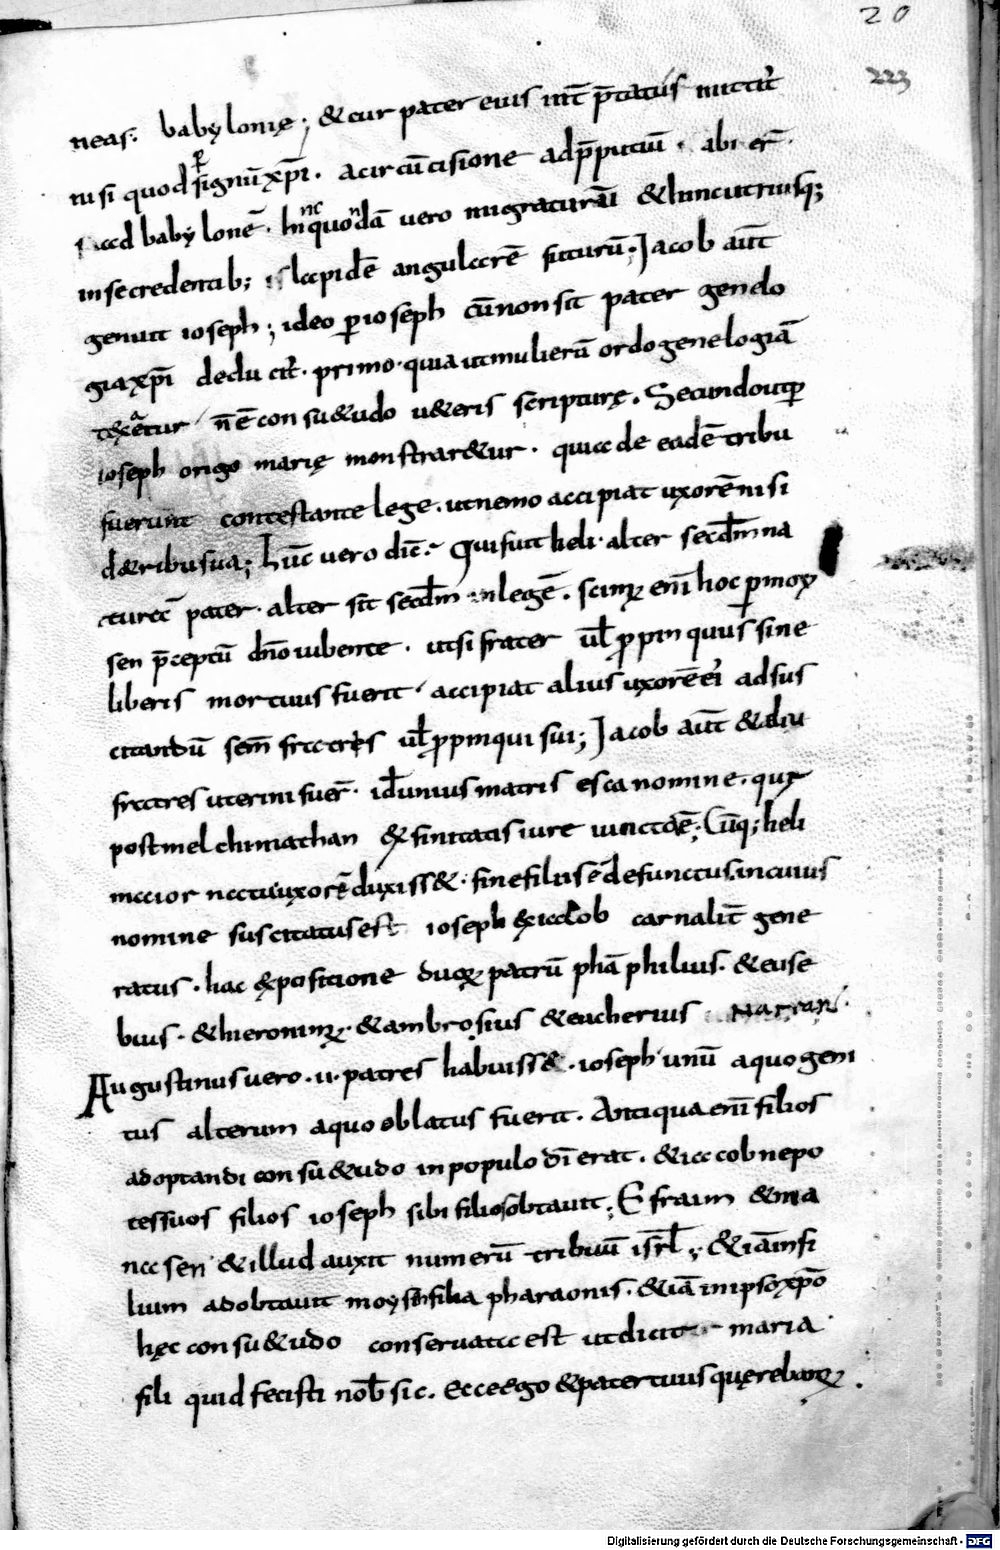 20
223
neas. babylonię ; & cur pater eius int̄ p̄tatus mittit̄
nisi quod signū xp̄i . a circūcisione ad p̄putiū . abi er̄ .
ad babylonē . hinc quondā vero migraturā & hinc utriusq;
in se credentib; is lapidē angularē futurū . Jacob aūt
genuit ioseph ; ideo p ioseph cū non sit pater genelo
gia xp̄i deducit̄ . primo . quia ut mulierū ordo genelogiā
texatur n̄ ē consu&udo u&eris scripturę . Secundo ut p
ioseph origo marię monstrar&ur . quia de eadē tribu
fuerunt contestante lege . ut nemo accipiat uxorē nisi
de tribu sua ; hūc vero dic̄ . Qui fuit heli . alter secdm̄ na
turā pater . alter sit secdm̄ legē . scimꝰ enī hoc p moy
sen p̄ceptū dn̄o iubente . ut si frater ul̄ ppinquus sine
liberis mortuus fuerit . accipiat alius uxorē ei ad sus
citandū sem̄ fratres ul̄ ppinqui sui ; Jacob aūt & eliu
fratres uterini fuer̄ . id̄ unius matris esca nomine . quę
post melchi mathan & finitatis iure iuncta ē ; Cūq; heli
maior natu uxorē duxiss& . sine filiis ē defunctus in cuius
nomine suscitatus est ioseph & iacob carnalit̄ gene
ratus . hac expositione duoꝝ patrū phā philius . & euse
bius . & hieronimꝰ . & ambrosius & eucherius
Augustinus vero . ii . patres habuiss& . ioseph unū a quo geni
tus alterum a quo oblatus fuerit . Antiqua enī filios
adoptandi consu&udo in populo dī erat . & iacob nepo
tes suos filios ioseph sibi filios obtavit ; Efraim & ma
nasen & illud auxit numerū tribuū isrl̄ ; & iā in fi
lium adobtavit moysen filia pharaonis . & iā in ipso xp̄o
hęc consu&udo conservata est ut dicit maria
fili quid fecisti nob̄ sic . ecce ego & pater tuus quęrebamꝰ .
Digitalisierung gefördert durch die Deutsche Forschungsgemeinschaft - DFG